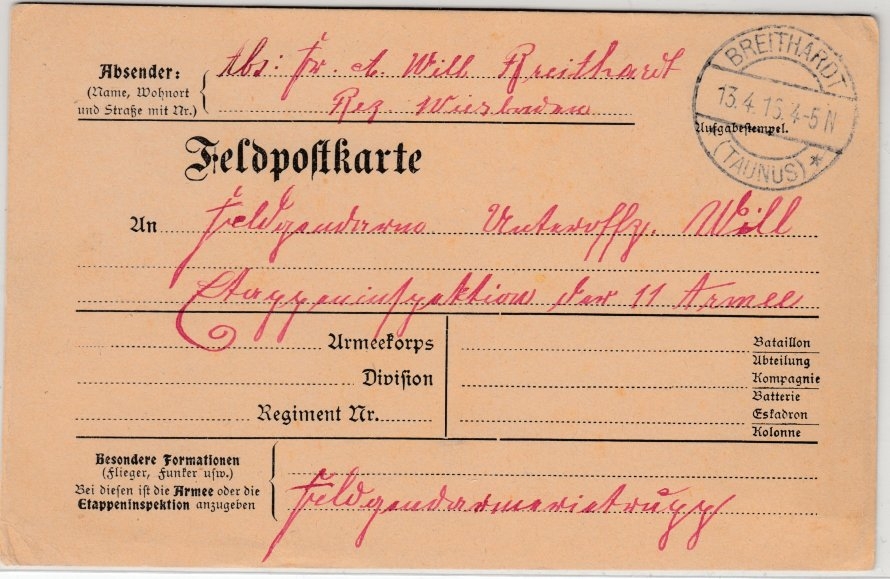 Absender:
(Name, Wohnort
und Straße mit Nr.)
Abs: Fr. A. Will Breithardt
Bez Wiesbaden
BREITHARDT
13.4.16. 4-5 N
(TAUNUS) *
Aufgabestempel.
Feldpostkarte
An Feldgendarm Unteroffz. Will
Etappeninspektion der 11 Armee
Armeekorps
Division
Regiment Nr.
Bataillon
Abteilung
Kompagnie
Batterie
Eskadron
Kolonne
Besondere Formationen
(Flieger, Funker usw.)
Bei diesen ist die Armee oder die
Etappeninspektion anzugeben
Feldgendarmerietrupp